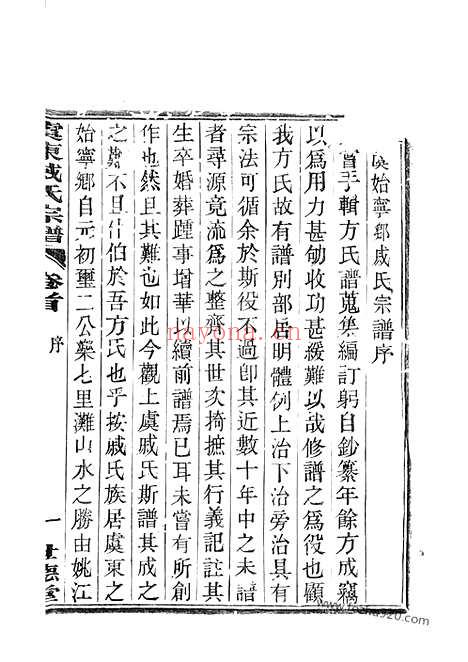 虞始寧鄉戚氏宗譜序
嘗手輯方氏譜蒐集編訂躬自鈔纂年餘方成竊
以爲用力甚劬收功甚緩難以哉修譜之爲役也顧
我方氏故有譜別部居明體例上治下治旁治具有
宗法可循余於斯役不過卽其近數十年中之未譜
者尋源竟流爲之整齊其世次掎摭其行義記註其
生卒婚葬踵事增華以續前譜焉已耳未嘗有所創
作也然且其難也如此今觀上虞戚氏斯譜其成之
之難不且什伯於吾方氏也乎按戚氏族居虞東之
始寧鄉自元初璽二公樂七里灘山水之勝由姚江
虞東戚氏宗譜
卷首
序
一
世德堂
nayona.cn
www.fozhu920.com